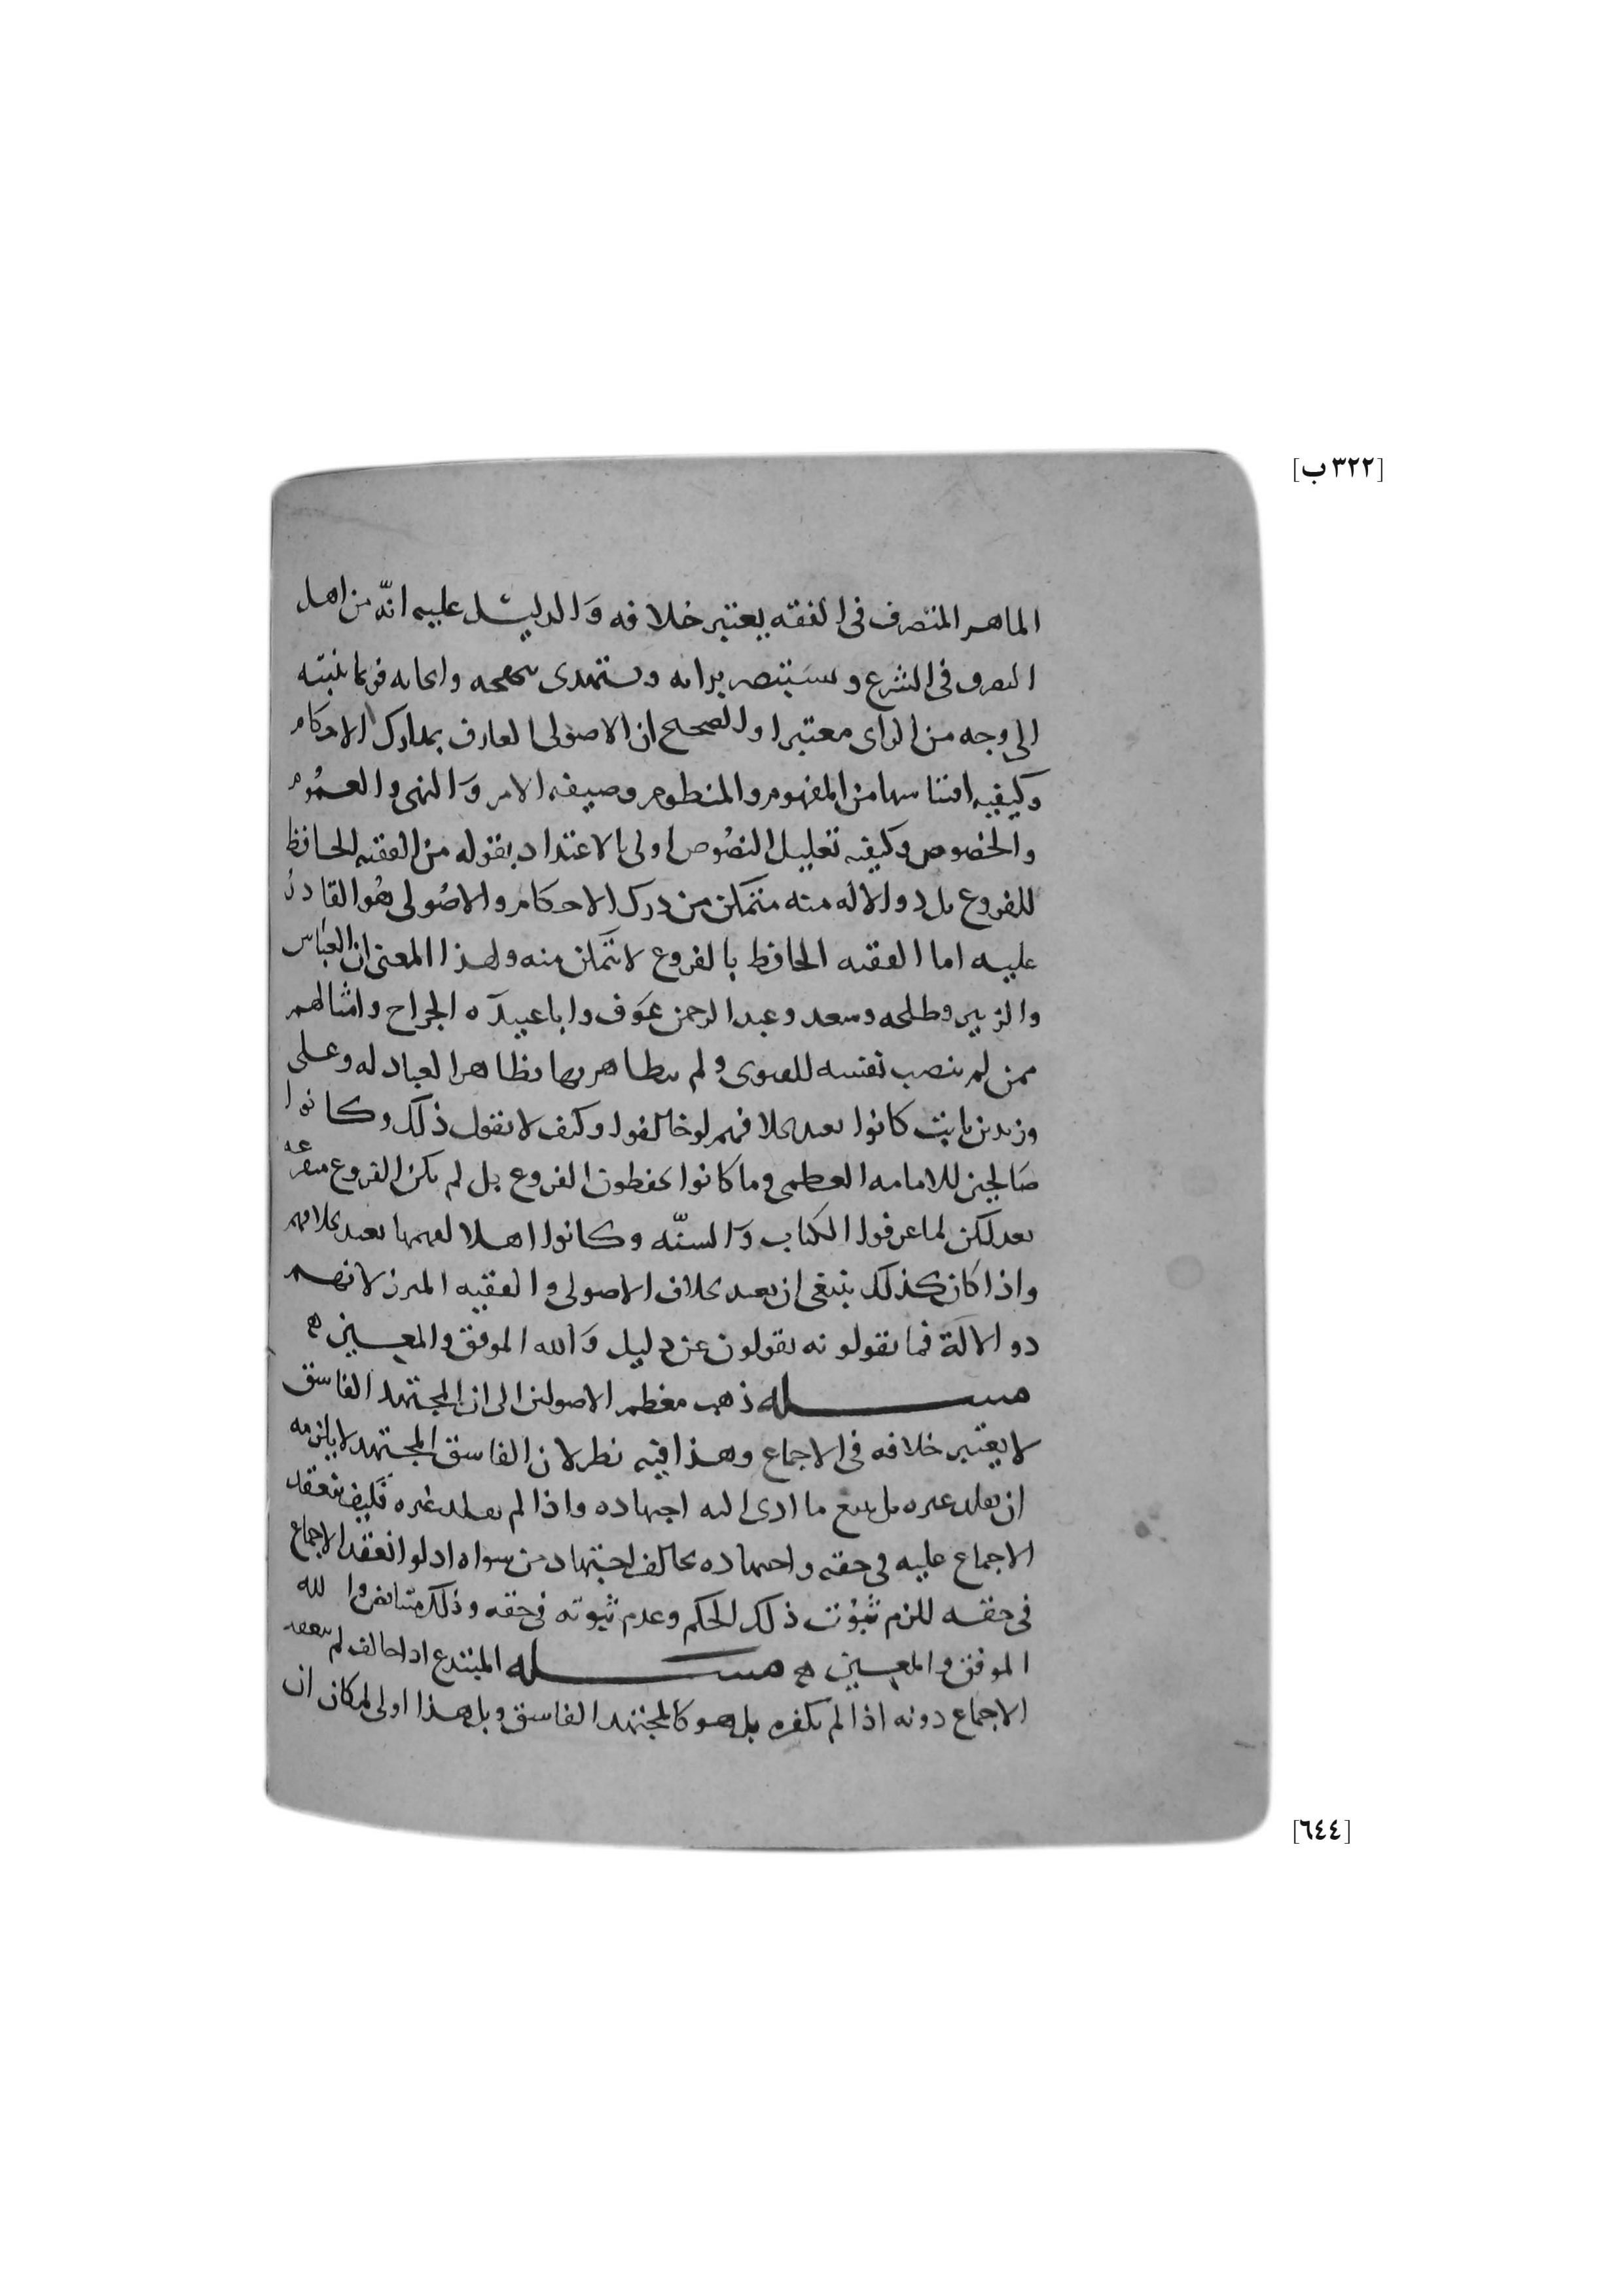 [٣٢٢ ب]
الماهر المتصرف في الفقه يعتبر خلافه والدليل عليه انّه من اهل
التصرف في الشرع ويستنصر برايه ويستهدى بنصحه فربما ينبته
الى وجه من الراى معتبرا والصحيح ان الاصولى العارف بمدارك الاحكام
وكيفيه اقتناسها من المفهوم والمنظوم وصيغه الامر والنهى والعموم
والخصوص وكيفيه تعليل النصوص اولى بالاعتداد بقوله من الفقيه الحافظ
للفروع بل ذو الاله منه متمكن من درك الاحكام والاصولى هو القادر
عليه اما الفقيه الحافظ بالفروع لا يتمكن منه ولهذا المعنى ان العباس
والزبير وطلحه وسعد وعبد الرحمن عوف وابا عبيده الجراح وامثالهم
ممن لم ينصب نفسه للفتوى ولم يتظاهر بها تظاهر العبادله وعلى
وزيد بن ثابت كانوا يعتد بخلافهم لو خالفوا وكيف لا نقول ذلك وكانوا
صالحين للامامه العظمى وما كانوا يحفظون الفروع بل لم يكن الفروع متفرعه
بعد لكن لما عرفوا الكتاب والسنّه وكانوا اهلا لفهمها يعتد بخلافهم
واذا كان كذلك ينبغى ان يعتد بخلاف الاصولى والفقيه المبرز لانهم
ذو الالة فما يقولونه يقولون عن دليل والله الموفق والمعين
مسله ذهب معظم الاصولين الى ان المجتهد الفاسق
لا يعتبر خلافه في الاجماع وهذا فيه نظر لان الفاسق المجتهد لا يلزمه
ان يقلد غيره بل يتبع ما ادى اليه اجتهاده واذا لم يقلد غيره فكيف ينعقد
الاجماع عليه في حقه واجتهاده يخالف اجتهاد من سواه اذ لو انعقد الاجماع
في حقه للزم ثبوت ذلك الحكم وعدم ثبوته في حقه وذلك متناقض والله
الموفق والمعين مسله المبتدع اذا خالف لم ينعقد
الاجماع دونه اذا لم نكفره بل هو كالمجتهد الفاسق وبل هذا اولى لمكان ان
[٦٤٤]